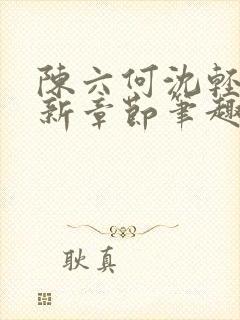 陳六何沈輕
新章節筆趣
耿真